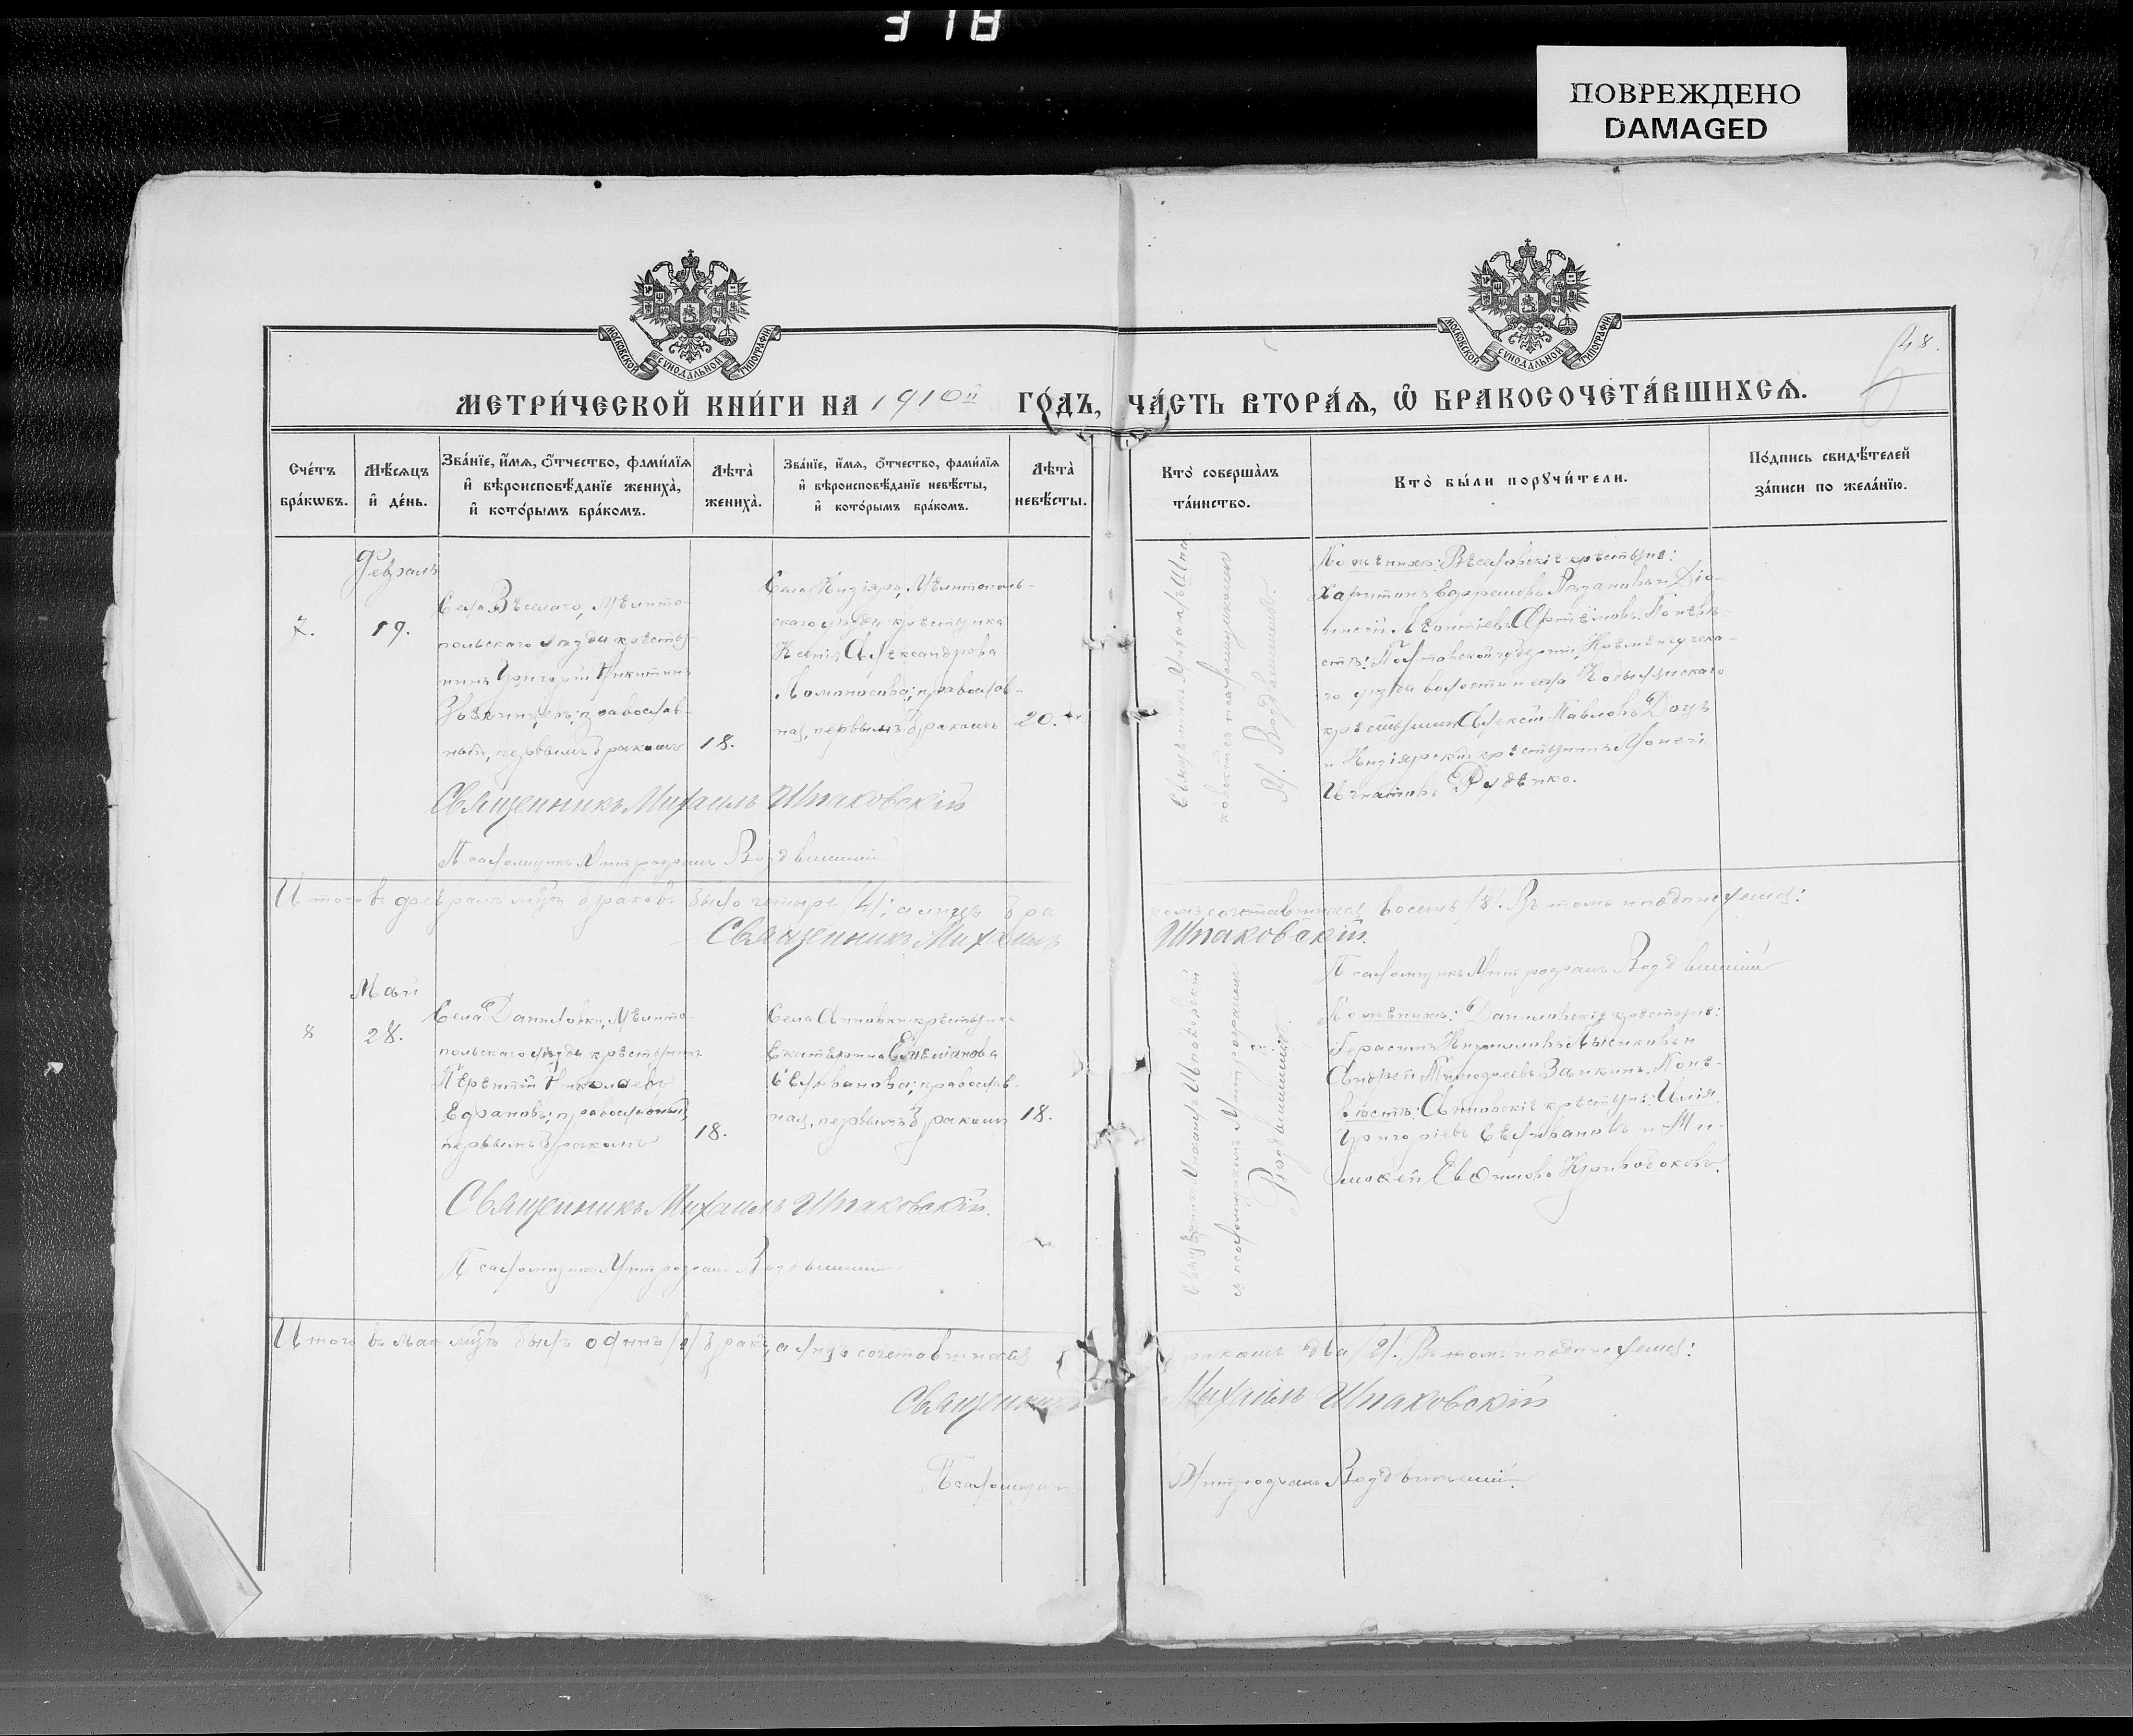 318
ПОВРЕЖДЕНО
DAMAGED
МОСКОВСКОЙ СѴНОДАЛЬНОЙ ТИПОГРАФІИ
МОСКОВСКОЙ СѴНОДАЛЬНОЙ ТИПОГРАФІИ
48.
МЕТРИ́ЧЕСКОЙ КНИ́ГИ НА 1910й ГО́ДЪ, ЧА́СТЬ ВТОРА́Ѧ, Ѽ БРАКОСОЧЕТА́ВШИХСѦ.
Сче́тъ
бра́кѡвъ.
Мѣ́сѧцъ
и҆ де́нь.
Зва́нїе, и҆́мѧ, ѻ҆́тчество, фами́лїѧ
и҆ вѣроисповѣ́данїе жениха̀,
и҆ кото́рымъ бра́комъ.
Лѣта̀
жениха̀.
Зва́нїе, и҆́мѧ, ѻ҆́тчество, фами́лїѧ
и҆ вѣроисповѣ́данїе невѣ́сты,
и҆ кото́рымъ бра́комъ.
Лѣта̀
невѣ́сты.
Кто̀ соверша́лъ
та́инство.
Кто̀ бы́ли порꙋчи́тели.
По́дпись свидѣ́телей
за́писи по жела́нїю.
7.
Февраль
19.
Села Веселаго, Мелито-
польскаго уѣзда крестья-
нинъ Григорій Никитинъ
православ-
ный, первымъ бракомъ
18.
Села Кизіяръ, Мелитополь-
скаго уѣзда крестьянка
Ксенія Александрова
Ломоносова; православ-
ная, первымъ бракомъ
20.
Священникъ Михаилъ Шпа-
ковскій съ псаломщикомъ
М. Воздвиженскій
По женихѣ: Веселовскіе крестьяне:
Харитонъ Ефремовъ и Діо-
нисій Леонтіевъ Артемовъ. По невѣ-
стѣ: Полтавской губерніи, Кременчугска-
го уѣзда волости и села
крестьянинъ Алексѣй Павловъ
и Кизіярскій крестьянинъ
Игнатовъ Руденко.
Священникъ Михаилъ Шпаковскій
Псаломщикъ Митрофанъ Воздвиженскій
Итого въ февралѣ мцѣ браковъ было четыре /4/; а лицъ бра
комъ сочетавшихся восемь /8/. Въ томъ и подписуемся:
Священникъ Михаилъ Шпаковскій.
Псаломщикъ Митрофанъ Воздвиженскій
8
Май
28.
Села Даниловки, Мелито-
польскаго уѣзда крестьянинъ
Терентій Николаевъ
православный,
первымъ бракомъ
18.
Села Анновки крестьянка
Екатерина Емеліанова
Селиванова; православ-
ная, первымъ бракомъ
18.
Священникъ Михаилъ Шпаковскій
съ псаломщикомъ Митрофаномъ
По женихѣ: Даниловскіе крестьяне:
Герасимъ Кирилловъ и
Андрей Тимофеевъ Заикинъ. По не-
вѣстѣ: Анновскіе крестьяне: Илія
Григоріевъ Селивановъ и Ти-
мофей Евфимовъ Кривобоковъ.
Священникъ Михаилъ Шпаковскій.
Псаломщикъ Митрофанъ Воздвиженскій
Итого въ маѣ мцѣ былъ одинъ /1/ бракъ, а лицъ сочетавшихся
бракомъ два /2/. Въ томъ и подписуемся:
Священникъ Михаилъ Шпаковскій
Псаломщикъ Митрофанъ Воздвиженскій.